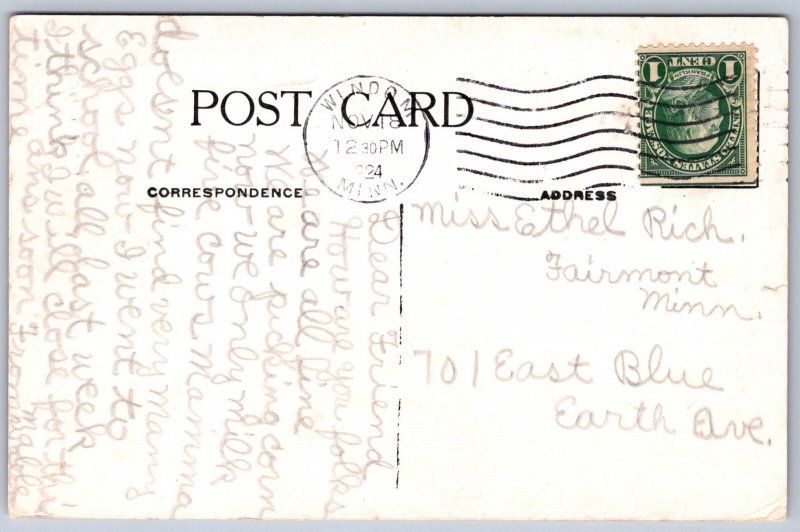 POST CARD
WINDOM
NOV 18
12 30 PM
1924
MINN.
1 CENT 1
FRANKLIN
UNITED STATES POSTAGE
CORRESPONDENCE
ADDRESS
Dear Friend
How are you folks
We are all fine
We are picking corn
now we only milk
five cows Mamma
doesnt find very many
Eggs now - I went to
school all last week
I think I will close for this
time ans soon From Mable
Miss Ethel Rich.
Fairmont
Minn.
701 East Blue
Earth Ave.